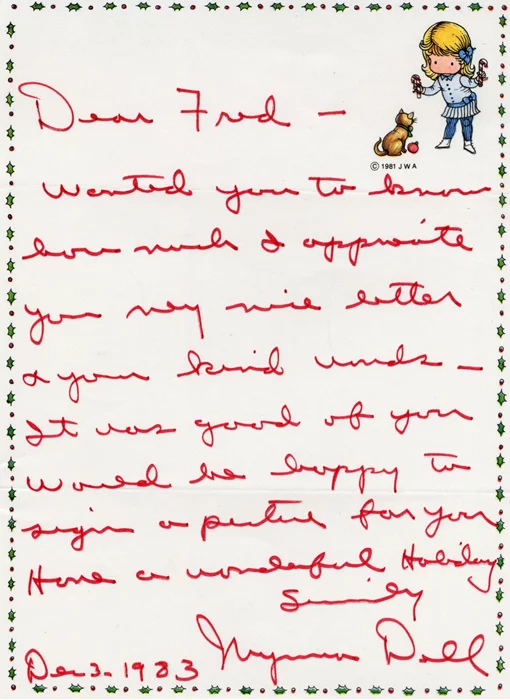 © 1981 J W A
Dear Fred —
Wanted you to know
how much I appreciate
your very nice letter
& your kind words —
It was good of you
Would be happy to
sign a picture for you
Have a wonderful Holiday
Sincerely
Myrna Dell
Dec 3 - 1983